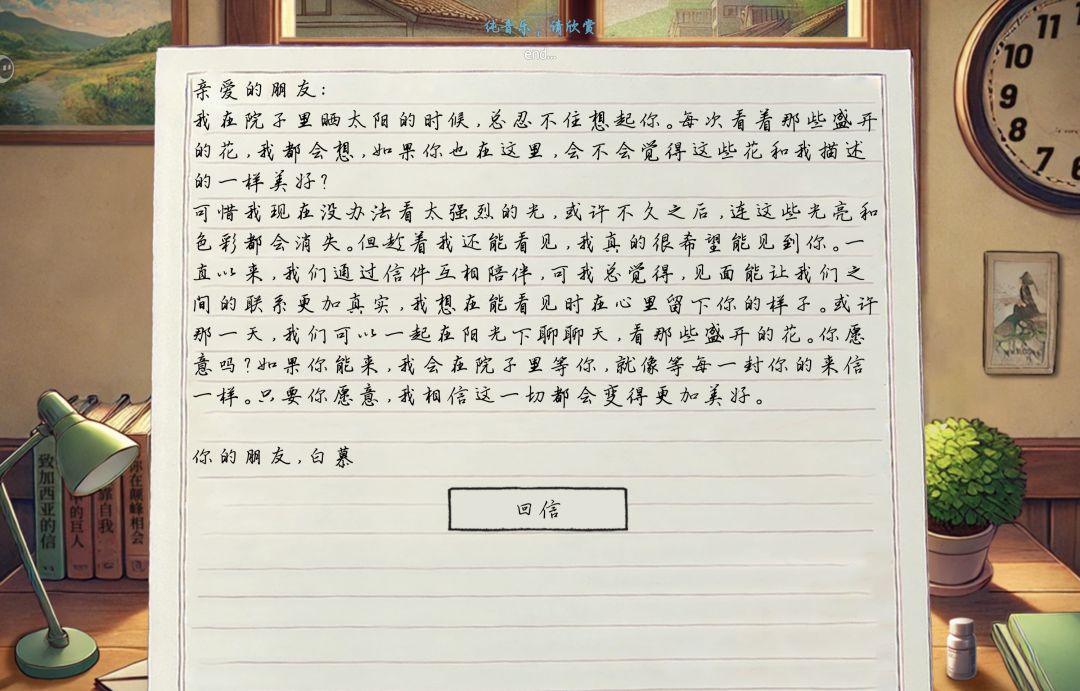 纯音乐，请欣赏
end...
亲爱的朋友:
我在院子里晒太阳的时候,总忍不住想起你。每次看着那些盛开
的花,我都会想,如果你也在这里,会不会觉得这些花和我描述
的一样美好?
可惜我现在没办法看太强烈的光,或许不久之后,连这些光亮和
色彩都会消失。但趁着我还能看见,我真的很希望能见到你。一
直以来,我们通过信件互相陪伴,可我总觉得,见面能让我们之
间的联系更加真实,我想在能看见时在心里留下你的样子。或许
那一天,我们可以一起在阳光下聊聊天,看那些盛开的花。你愿
意吗?如果你能来,我会在院子里等你,就像等每一封你的来信
一样。只要你愿意,我相信这一切都会变得更加美好。
你的朋友,白慕
回信
致加西亚的信
的巨人
靠自我
你在巅峰相会
11
10
9
8
7